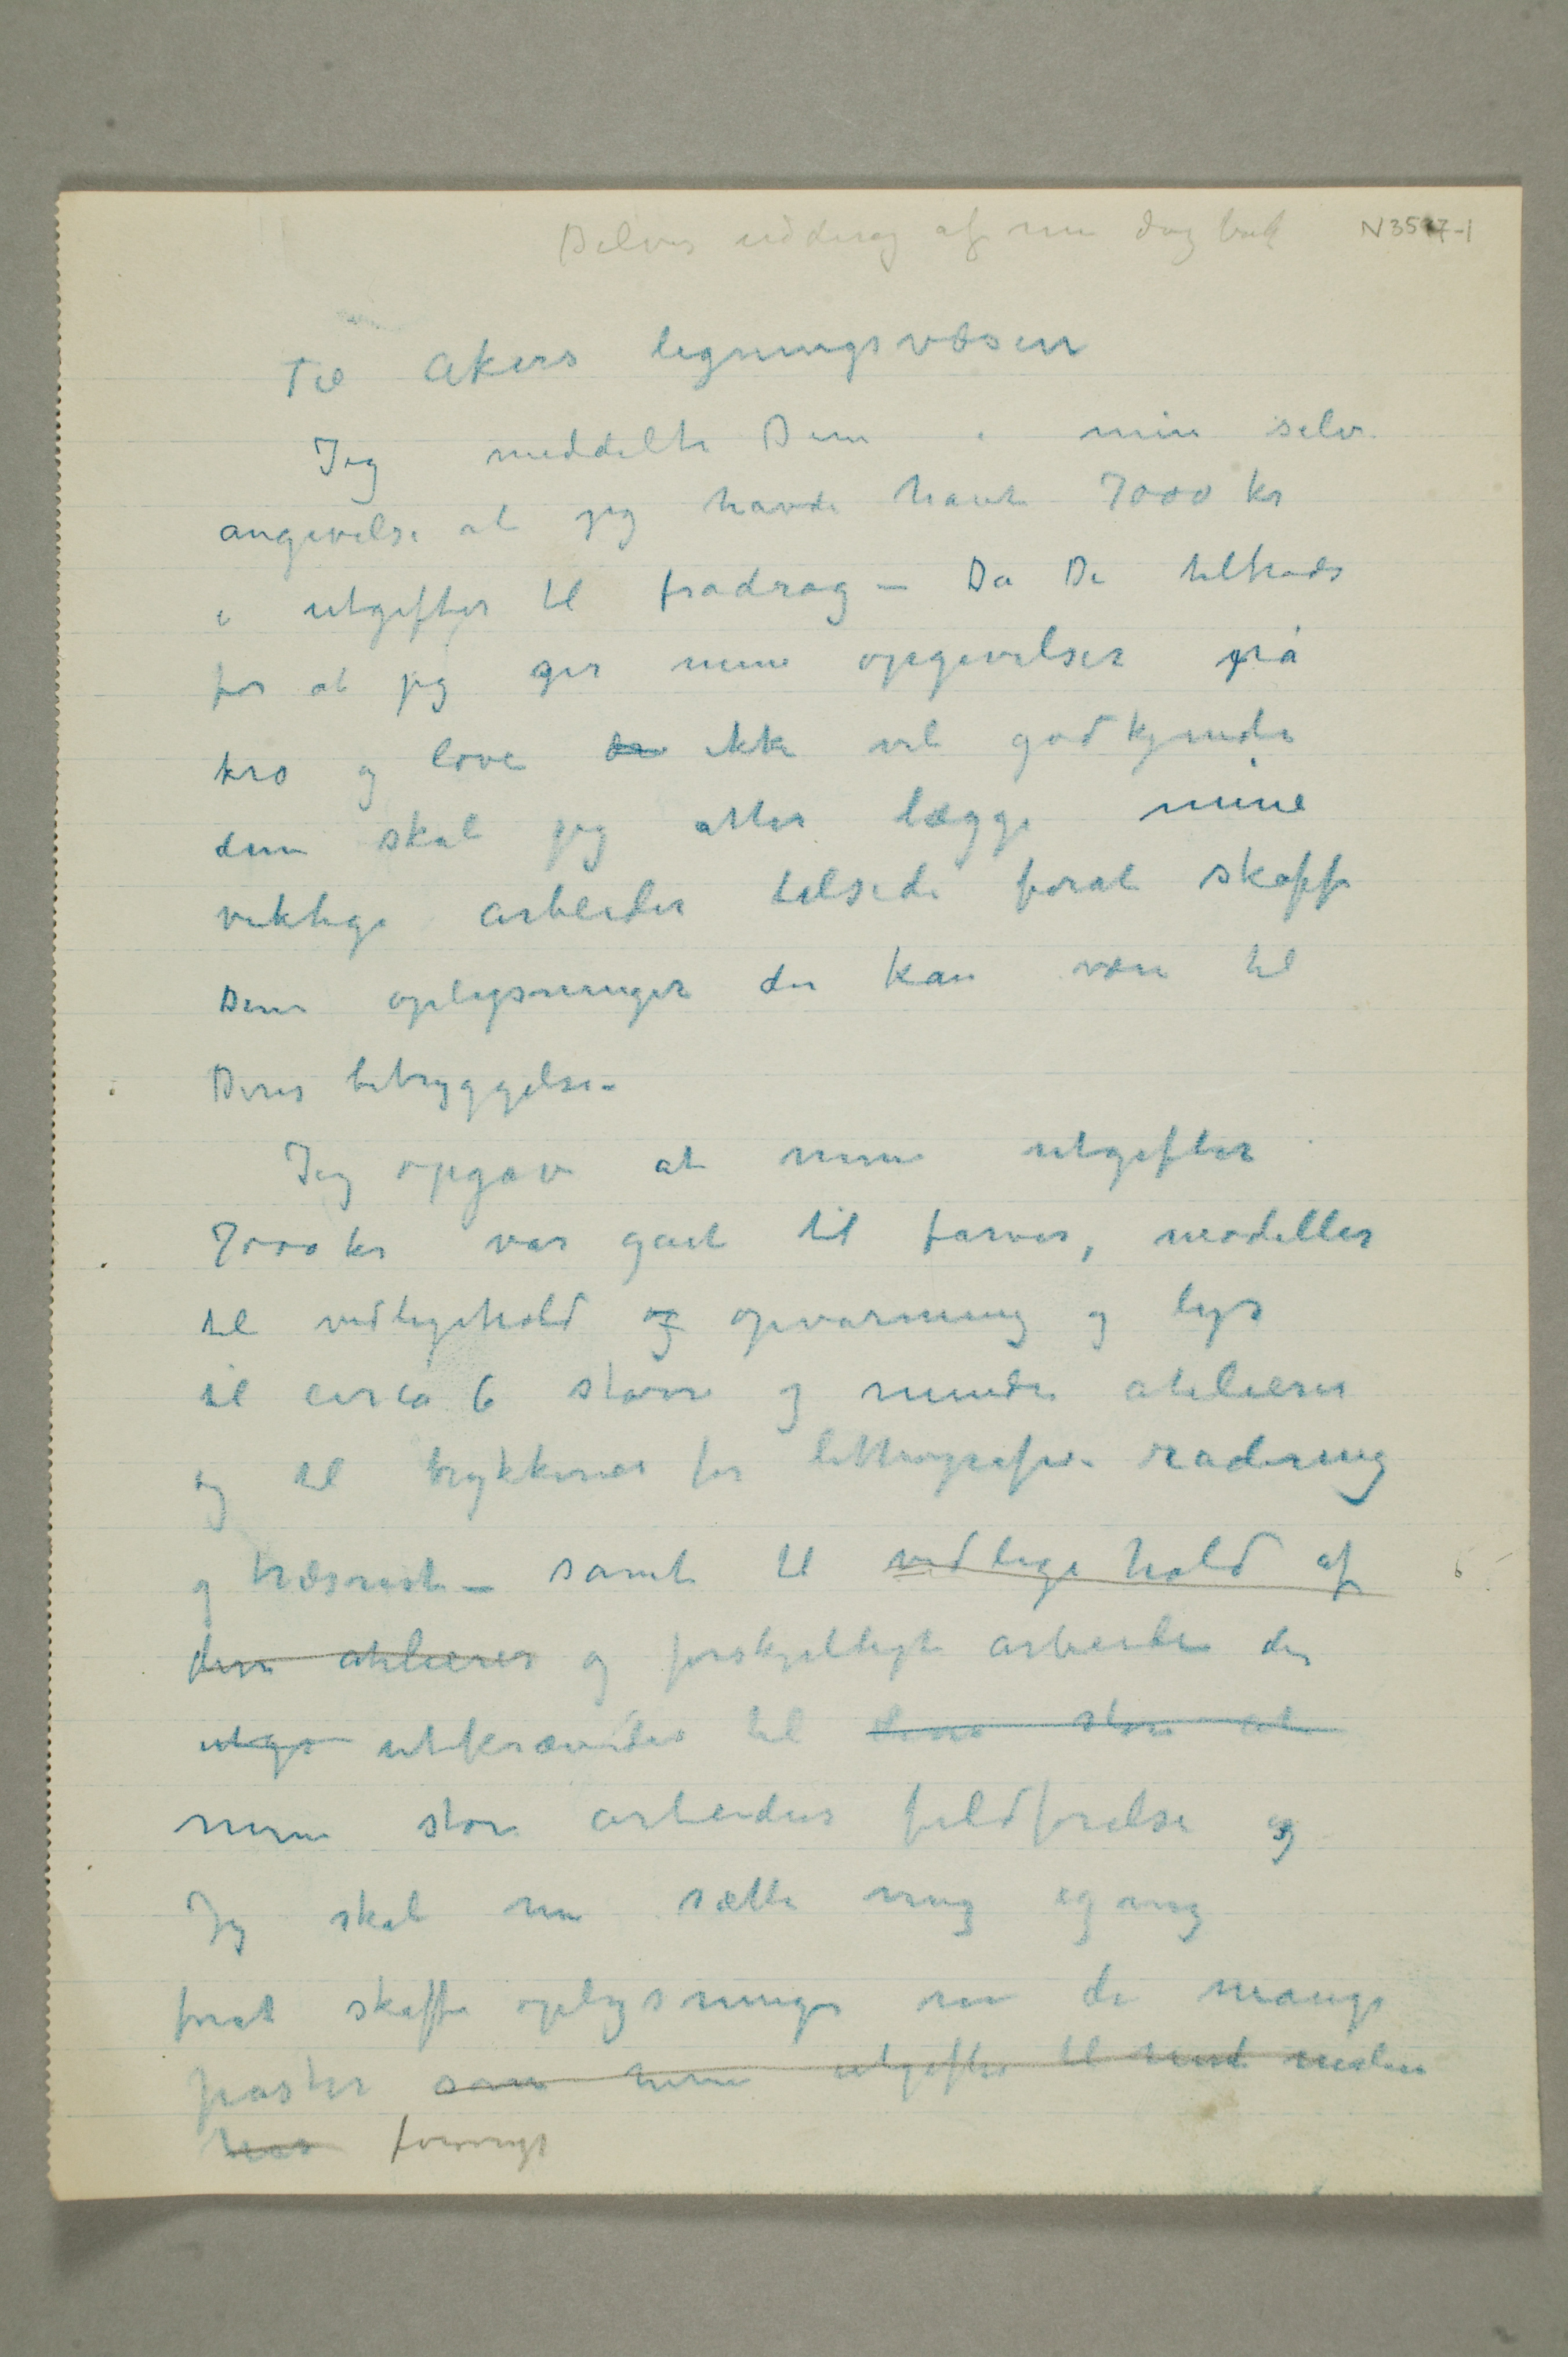 Delvis uddrag af min dagbok
N 3517-1
Til Akers ligningsvæsen
Jeg meddelte Dem i min selv-
angivelse at jeg havde havt 7000 kr
i utgifter til fradrag – Da De tiltrods
for at jeg gir mine opgivelser på
tro og love de ikke vil godkjende
dem skal jeg atter lægge mine
viktige arbeider tilside forat skaffe
Dem oplysninger der kan være til
Deres betryggelse –
Jeg opgav at mine utgifter
7000 kr var gåt til farver, modeller
til vedligehold og opvarming og lys
til circa 6 større og mindre atelierer
og til trykkerier for litthografi – radering
og træsnit – samt til vedlige hold af
disse atelierer og forskjelligt arbeide der
utgo utkrævedes til store
mine store arbeiders fuldførelse og
Jeg skal nu sætte mig igang
forat skaffe oplysninger om de mange
poster som mine utgifter til
forøvrigt